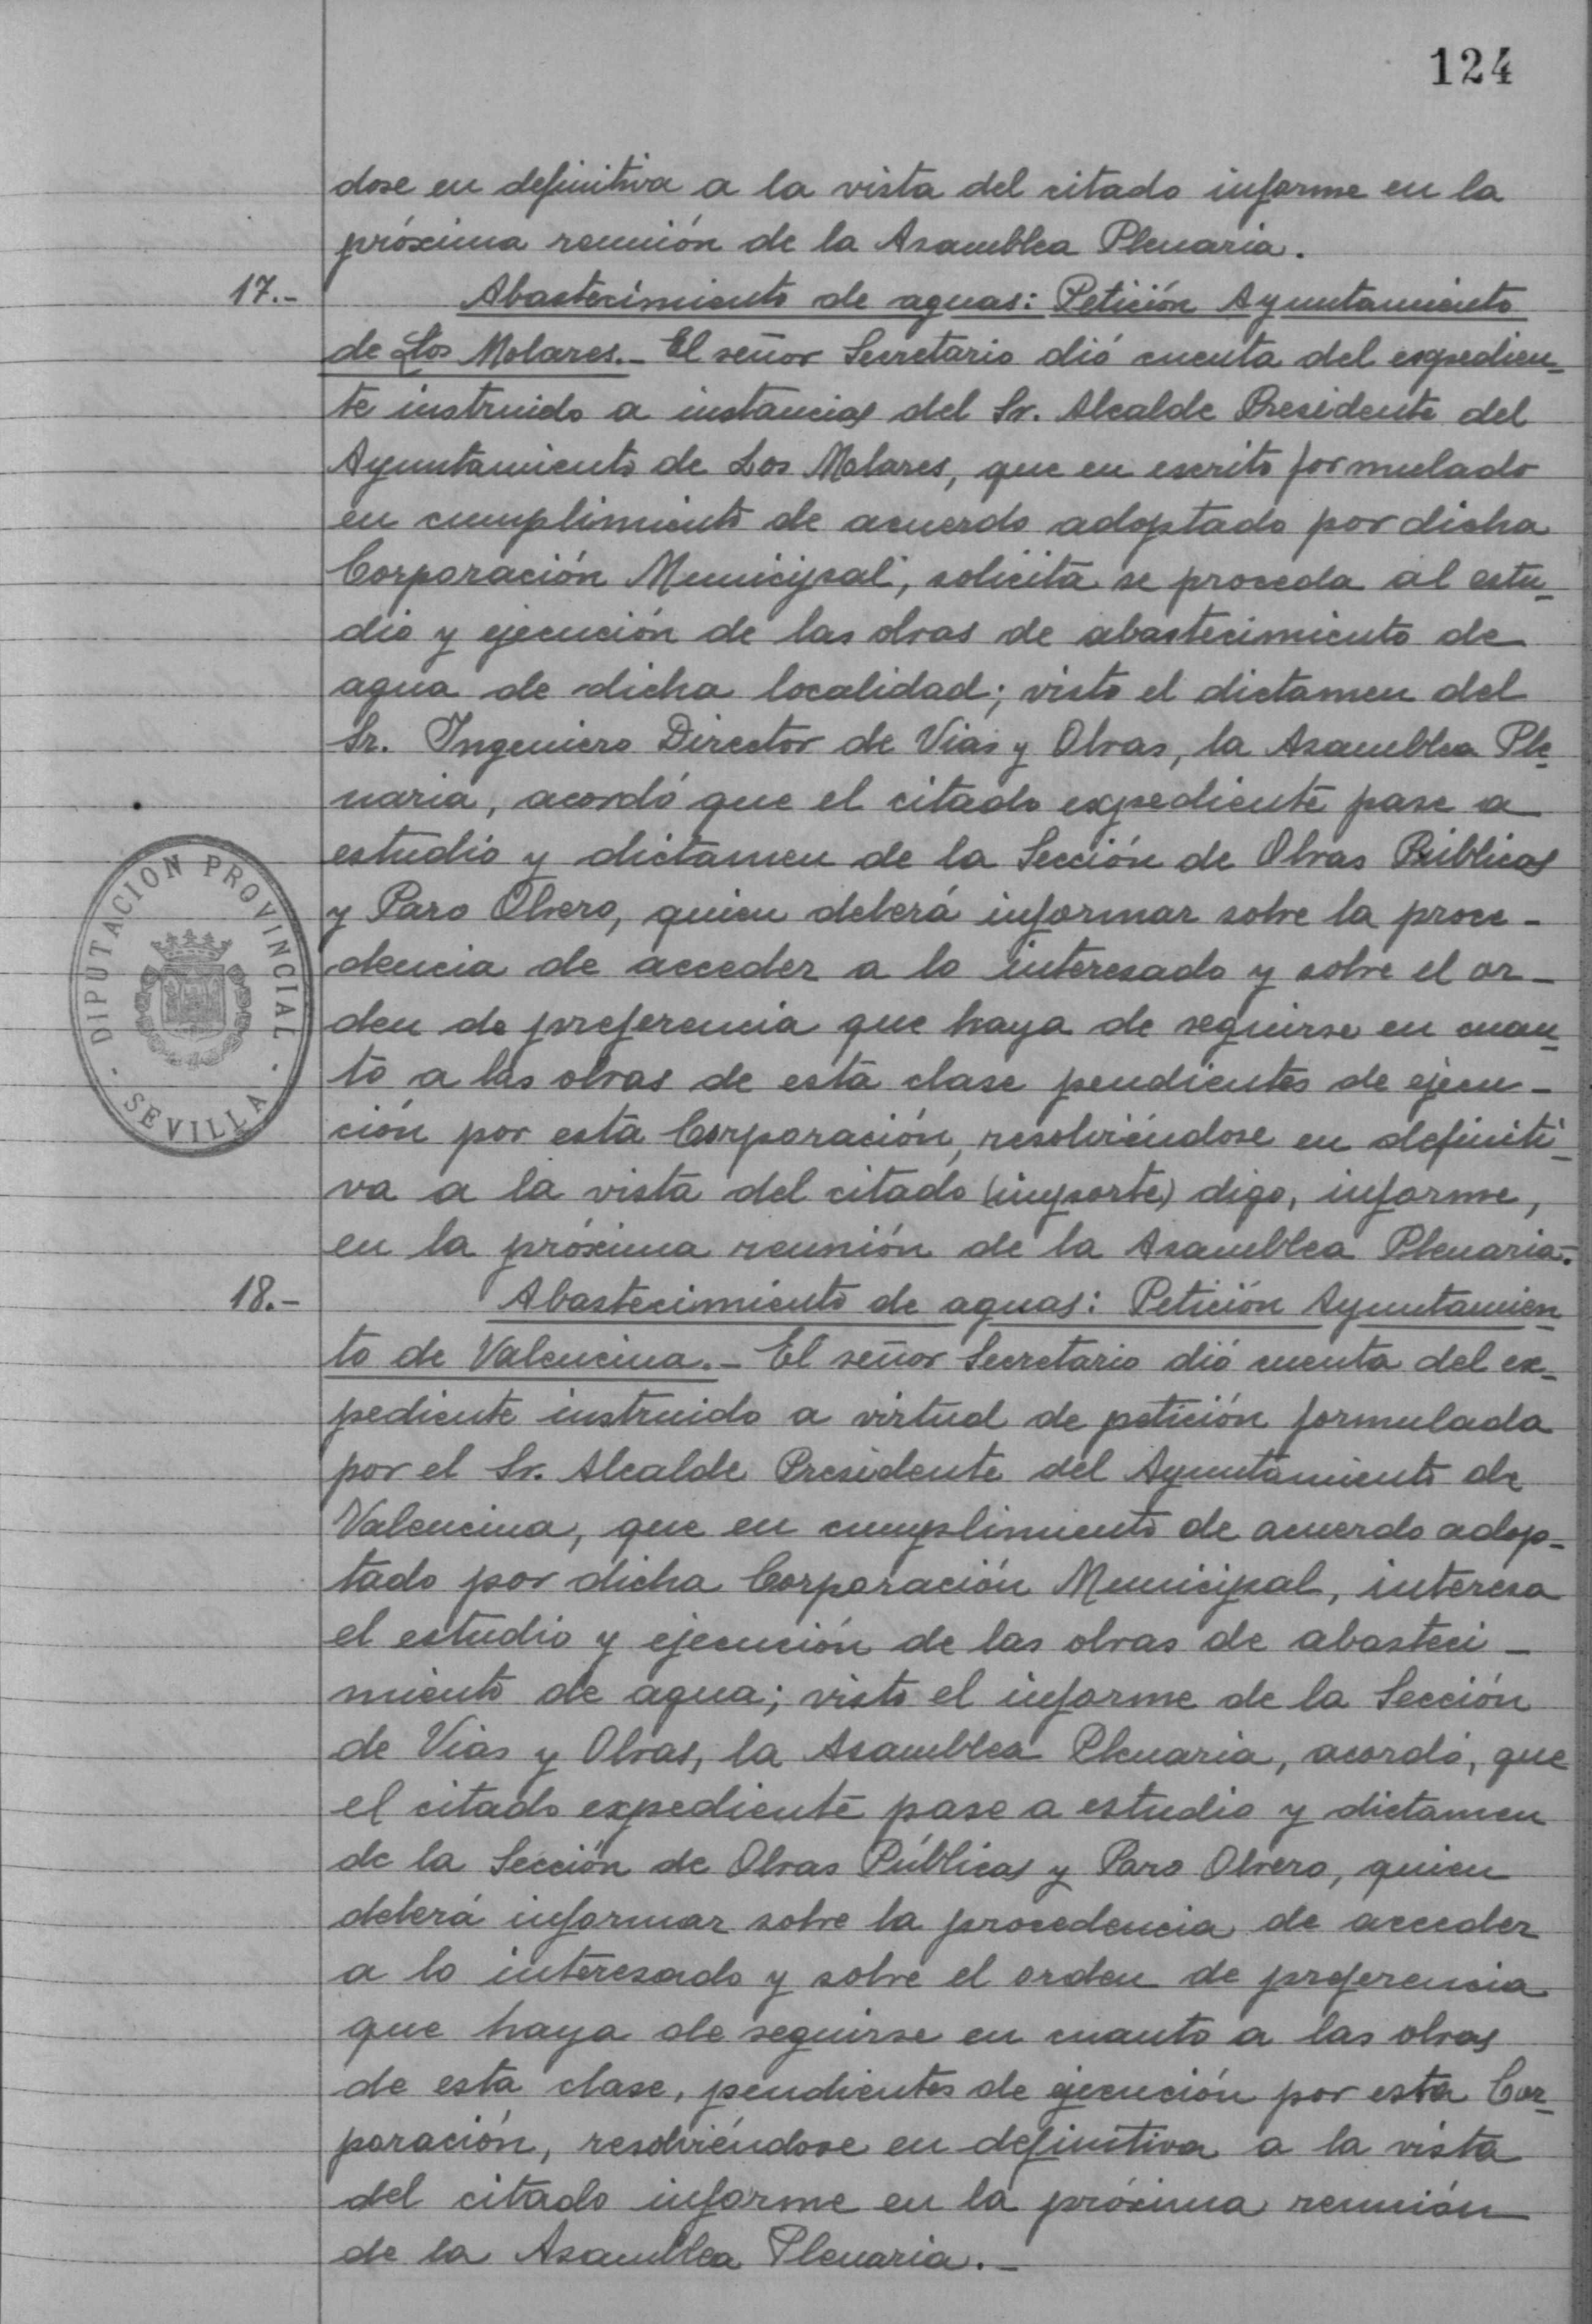 124
dose en definitiva a la vista del citado informe en la
próxima reunión de la Asamblea Plenaria.
17.- Abastecimiento de aguas: Petición Ayuntamiento
de Los Molares.- El señor Secretario dió cuenta del expedien-
te instruido a instancias del Sr. Alcalde Presidente del
Ayuntamiento de Los Molares, que en escrito formulado
en cumplimiento de acuerdo adoptado por dicha
Corporación Municipal, solicita se proceda al estu-
dio y ejecución de las obras de abastecimiento de
agua de dicha localidad; visto el dictamen del
Sr. Ingeniero Director de Vias y Obras, la Asamblea Ple-
naria, acordó que el citado expediente pase a
estudio y dictamen de la Sección de Obras Públicas
y Paro Obrero, quien deberá informar sobre la proce-
dencia de acceder a lo interesado y sobre el or-
den de preferencia que haya de seguirse en cuan-
to a las obras de esta clase pendientes de ejecu-
ción por esta Corporación, resolviéndose en definiti-
va a la vista del citado (importe) digo, informe,
en la próxima reunión de la Asamblea Plenaria.-
18.- Abastecimiento de aguas: Petición Ayuntamien-
to de Valencina.- El señor Secretario dió cuenta del ex-
pediente instruido a virtud de petición formulada
por el Sr. Alcalde Presidente del Ayuntamiento de
Valencina, que en cumplimiento de acuerdo adop-
tado por dicha Corporación Municipal, interesa
el estudio y ejecución de las obras de abasteci-
miento de agua; visto el informe de la Sección
de Vias y Obras, la Asamblea Plenaria, acordó, que
el citado expediente pase a estudio y dictamen
de la Sección de Obras Públicas y Paro Obrero, quien
deberá informar sobre la procedencia de acceder
a lo interesado y sobre el orden de preferencia
que haya de seguirse en cuanto a las obras
de esta clase, pendientes de ejecución por esta Cor-
poración, resolviéndose en definitiva a la vista
del citado informe en la próxima reunión
de la Asamblea Plenaria.-
DIPUTACION PROVINCIAL
· SEVILLA ·